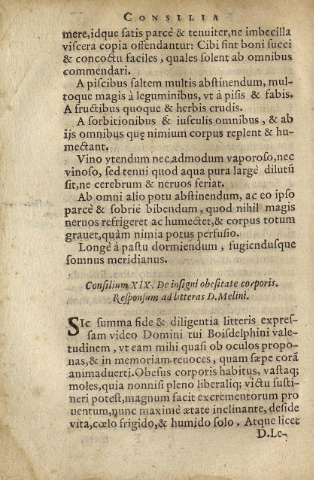 CONSILIA
mere, idque satis parcè & tenuiter, ne imbecilla
viscera copia offendantur: Cibi sint boni succi
& concoctu faciles, quales solent ab omnibus
commendari.
A piscibus saltem multis abstinendum, mul-
toque magis à leguminibus, vt à pisis & fabis.
A fructibus quoque & herbis crudis.
A sorbitionibus & iusculis omnibus, & ab
ijs omnibus quę nimium corpus replent & hu-
mectant.
Vino vtendum nec admodum vaporoso, nec
vinoso, sed tenui quod aqua pura largè dilutũ
sit, ne cerebrum & neruos feriat.
Ab omni alio potu abstinendum, ac eo ipso
parcè & sobriè bibendum, quod nihil magis
neruos refrigeret ac humectet, & corpus totum
grauet, quàm nimia potus perfusio.
Longè à pastu dormiendum, fugiendusque
somnus meridianus.
Consilium XIX. De insigni obesitate corporis.
Responsum ad litteras D. Melini.
SIc summa fide & diligentia litteris expres-
sam video Domini tui Boisdelphini vale-
tudinem, vt eam mihi quasi ob oculos propo-
nas, & in memoriam reuoces, quam sæpe corã
animaduerti. Obesus corporis habitus, vastaq;
moles, quia nonnisi pleno liberaliq; victu susti-
neri potest, magnum facit excrementorum pro
uentum, nunc maximè ætate inclinante, deside
vita, cœlo frigido, & humido solo. Atque licet
D. Le-